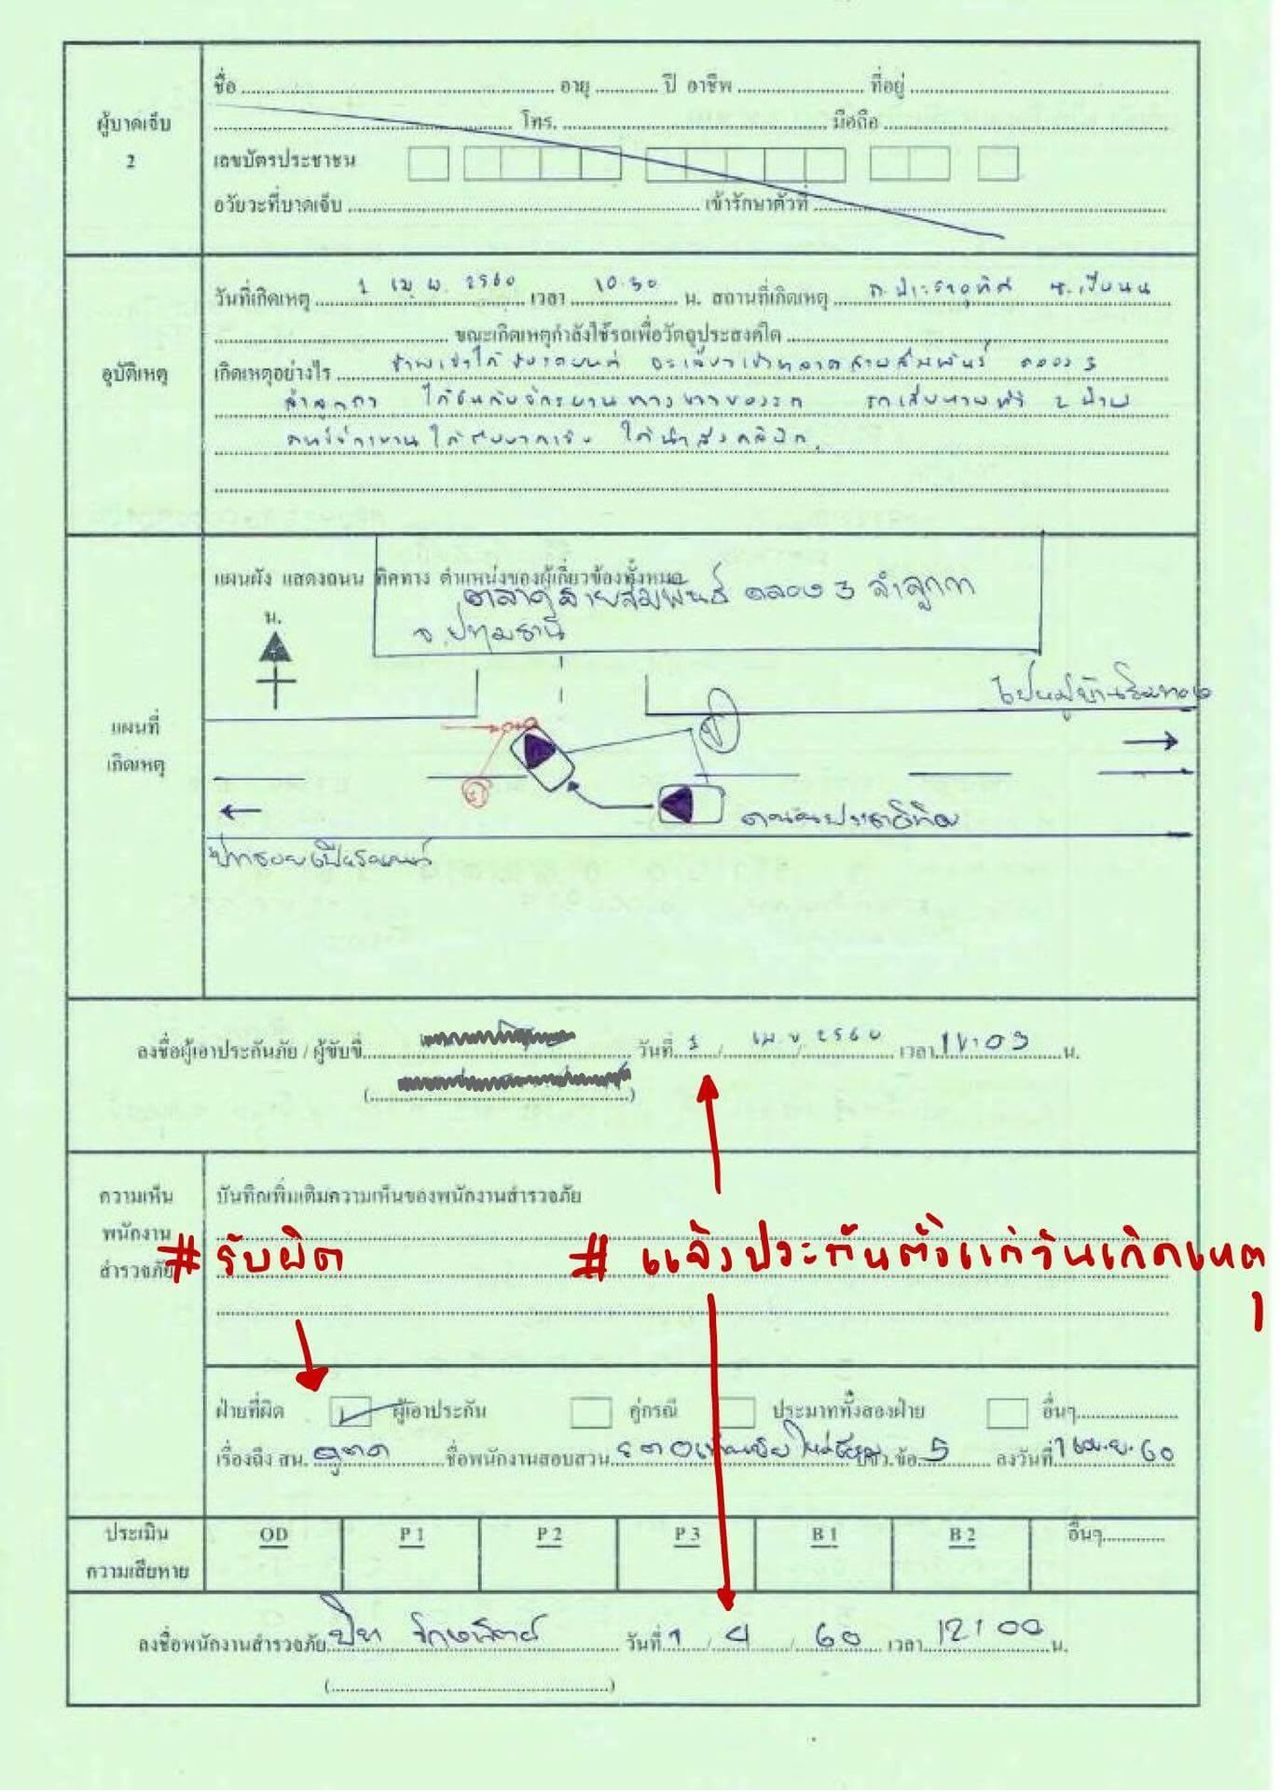 ผู้บาดเจ็บ
2
ชื่อ อายุ ปี อาชีพ ที่อยู่
โทร. มือถือ
เลขบัตรประชาชน
อวัยวะที่บาดเจ็บ เข้ารักษาตัวที่
อุบัติเหตุ
วันที่เกิดเหตุ 1 เม.ย. 2560 เวลา 10.30 น. สถานที่เกิดเหตุ
ขณะเกิดเหตุกำลังใช้รถเพื่อวัตถุประสงค์ใด
เกิดเหตุอย่างไร ข้าพเจ้าได้ขับรถยนต์ จะเลี้ยวเข้าตลาดสายสัมพันธ์ คลอง 3
ลำลูกกา ได้ชนกับจักรยานทางขวาของรถ
ได้นำส่งคลินิก
แผนที่
เกิดเหตุ
แผนผัง แสดงถนน ทิศทาง ตำแหน่งของผู้เกี่ยวข้องทั้งหมด
ตลาดสายสัมพันธ์ คลอง 3 ลำลูกกา
จ.ปทุมธานี
น.
ลงชื่อผู้เอาประกันภัย / ผู้ขับขี่ วันที่ 1 / เม.ย / 2560 เวลา 11:03 น.
(
)
ความเห็น
พนักงาน
สำรวจภัย
บันทึกเพิ่มเติมความเห็นของพนักงานสำรวจภัย
# รับผิด
# แจ้งประกันตั้งแต่วันเกิดเหตุ
ฝ่ายที่ผิด ผู้เอาประกัน คู่กรณี ประมาททั้งสองฝ่าย อื่นๆ
เรื่องถึง สน. คูคต ชื่อพนักงานสอบสวน ปจว.ข้อ 5 ลงวันที่ 1 เม.ย. 60
ประเมิน
ความเสียหาย
OD P 1 P 2 P 3 B 1 B 2 อื่นๆ
ลงชื่อพนักงานสำรวจภัย วันที่ 1 / 4 / 60 เวลา 12:00 น.
(
)